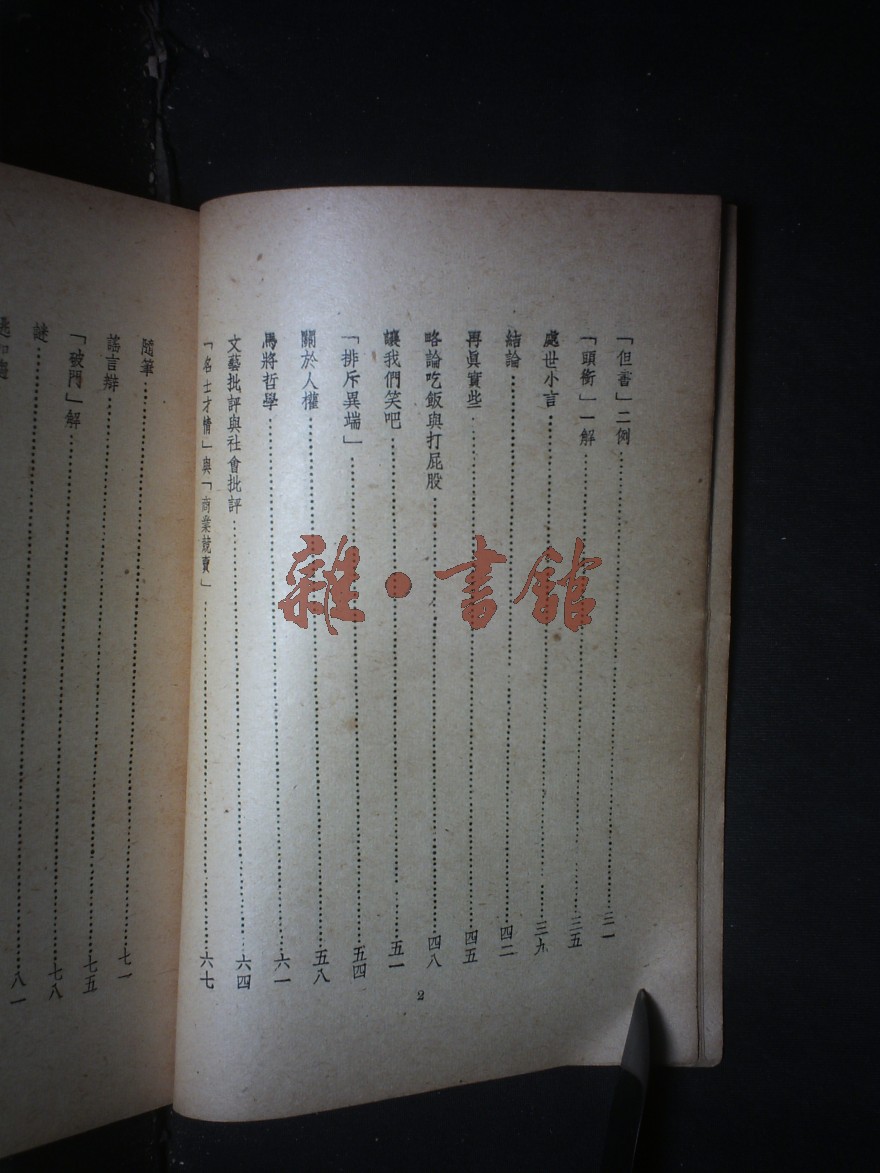 「但書」二例……三一
「頭銜」一解……三五
處世小言……三九
結論……四二
再眞實些……四五
略論吃飯與打屁股……四八
讓我們笑吧……五一
「排斥異端」……五四
關於人權……五八
馬將哲學……六一
文藝批評與社會批評……六四
「名士才情」與「商業競賣」……六七
2
隨筆……七一
謠言辯……七五
「破門」解……七八
謎……八一
雜·書館